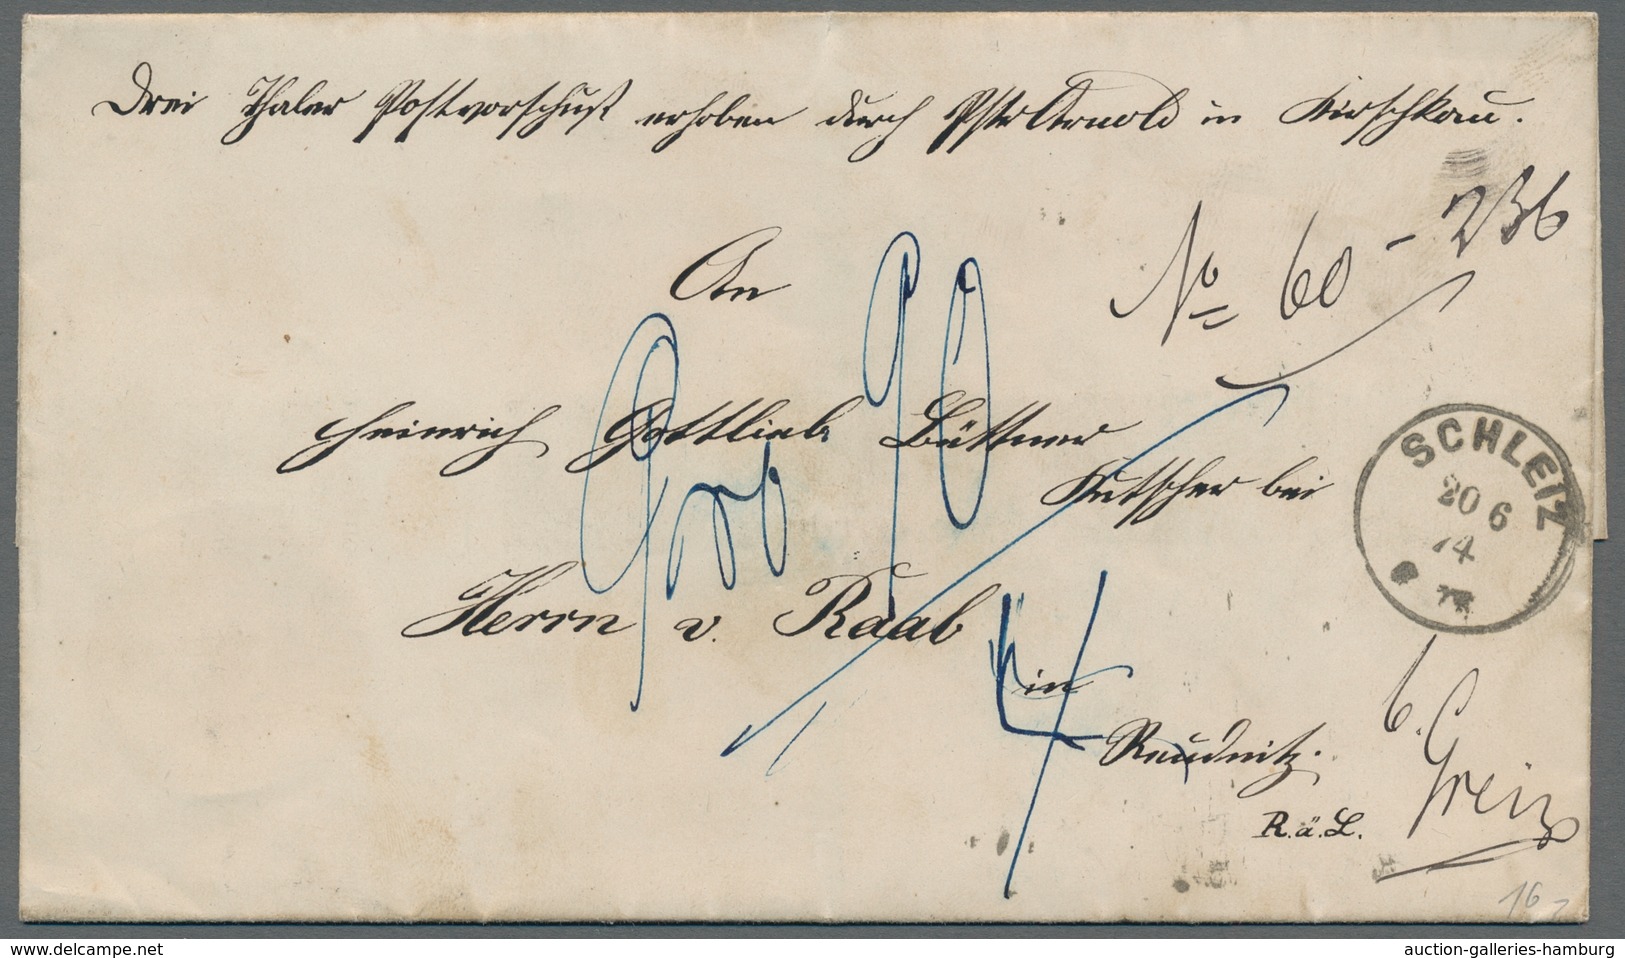 Drei Thaler Postvorschuß erhoben durch Pstr Arnold in Kirschkau.
No 60 - 236
An
90
Heinrich Gottlieb Büttner
Kutscher bei
SCHLEIZ
20 6
74
Herrn v. Raab
4
in
Reudnitz.
b. Greiz
R.ä.L.
16
www.delcampe.net
auction-galleries-hamburg